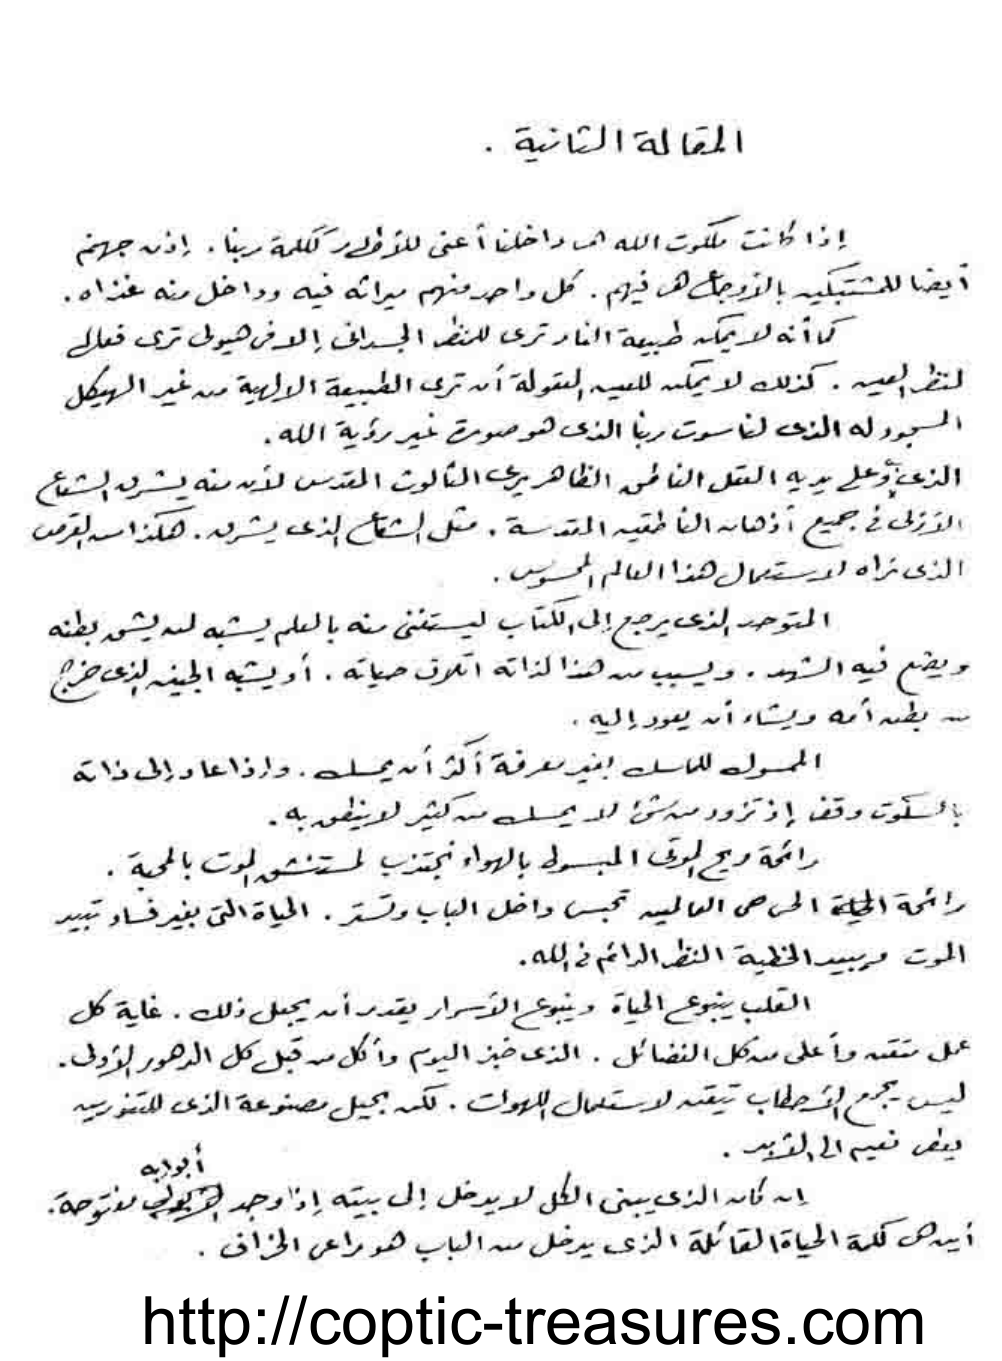 المقالة الثانية .
إذا كانت ملكوت الله هى داخلنا أعنى للأطهار ككلمة ربنا . إذن جهنم
أيضا للمشتبكين بالأوجاع هى فيهم . كل واحد منهم ميراثه فيه وداخل منه عذاه .
كما أنه لا يمكن طبيعة النار ترى للنظر الجسدانى إلا فى هيولى ترى فعالى
لنظر العين . كذلك لا يمكن للعين المعقولة أن ترى الطبيعة الالهية من غير الهيكل
المسجود له الذى لناسوت ربنا الذى هو صورة غير رؤية الله .
الذى وعلى يديه العقل الناطق الظاهر يرى الثالوث المقدس لأن منه يشرق الشعاع
الأزلى فى جميع أذهان الناطقين المقدسة . مثل الشعاع الذى يشرق . هكذا من القرص
الذى نراه لاستعمال هذا العالم المحسوس .
المتوحد الذى يرجع إلى الكتاب ليستغنى منه بالعلم يشبه لمن يشق بطنه
ويضع فيه الشهد . ويسبب من هذا لذاته اتلاف حياته . أو يشبه الجنين الذى خرج
من بطن أمه ويشاء أن يعود إليه .
الممسوك للماسك بغير معرفة أكثر أن يمسك . وإذا عاد إلى ذاته
بالسكوت وقف إذ تزود من شئ لا يمسك من كثير لا ينطق به .
رائحة ريح الموتى المبسوط بالهواء نجتذب لمستنشق الموت بالمحبة .
رائحة الحياة الحى حى العالمين تحبس داخل الباب وتستر . الحياة التى بغير فساد تبيد
الموت ويبيد الخطية النظر الدائم فى الله .
القلب ينبوع الحياة وينبوع الأسرار يقدر أن يجبل ذلك . غاية كل
عمل متقن وأعلى من كل الفضائل . الذى خبز اليوم وأكل من قبل كل الدهور الأولى .
ليس يجمع الأحطاب تيقن لاستعمال اللهوات . لكن بحيل مصنوعة الذى للتنورين
يعطى نعيم الى الأبد .
أبوابه
إن كان الذى يبنى الكل لا يدخل إلى بيته إذا وجد مفتوحة .
أين هى كلمة الحياة القائلة الذى يدخل من الباب هو راعى الخراف .
http://coptic-treasures.com